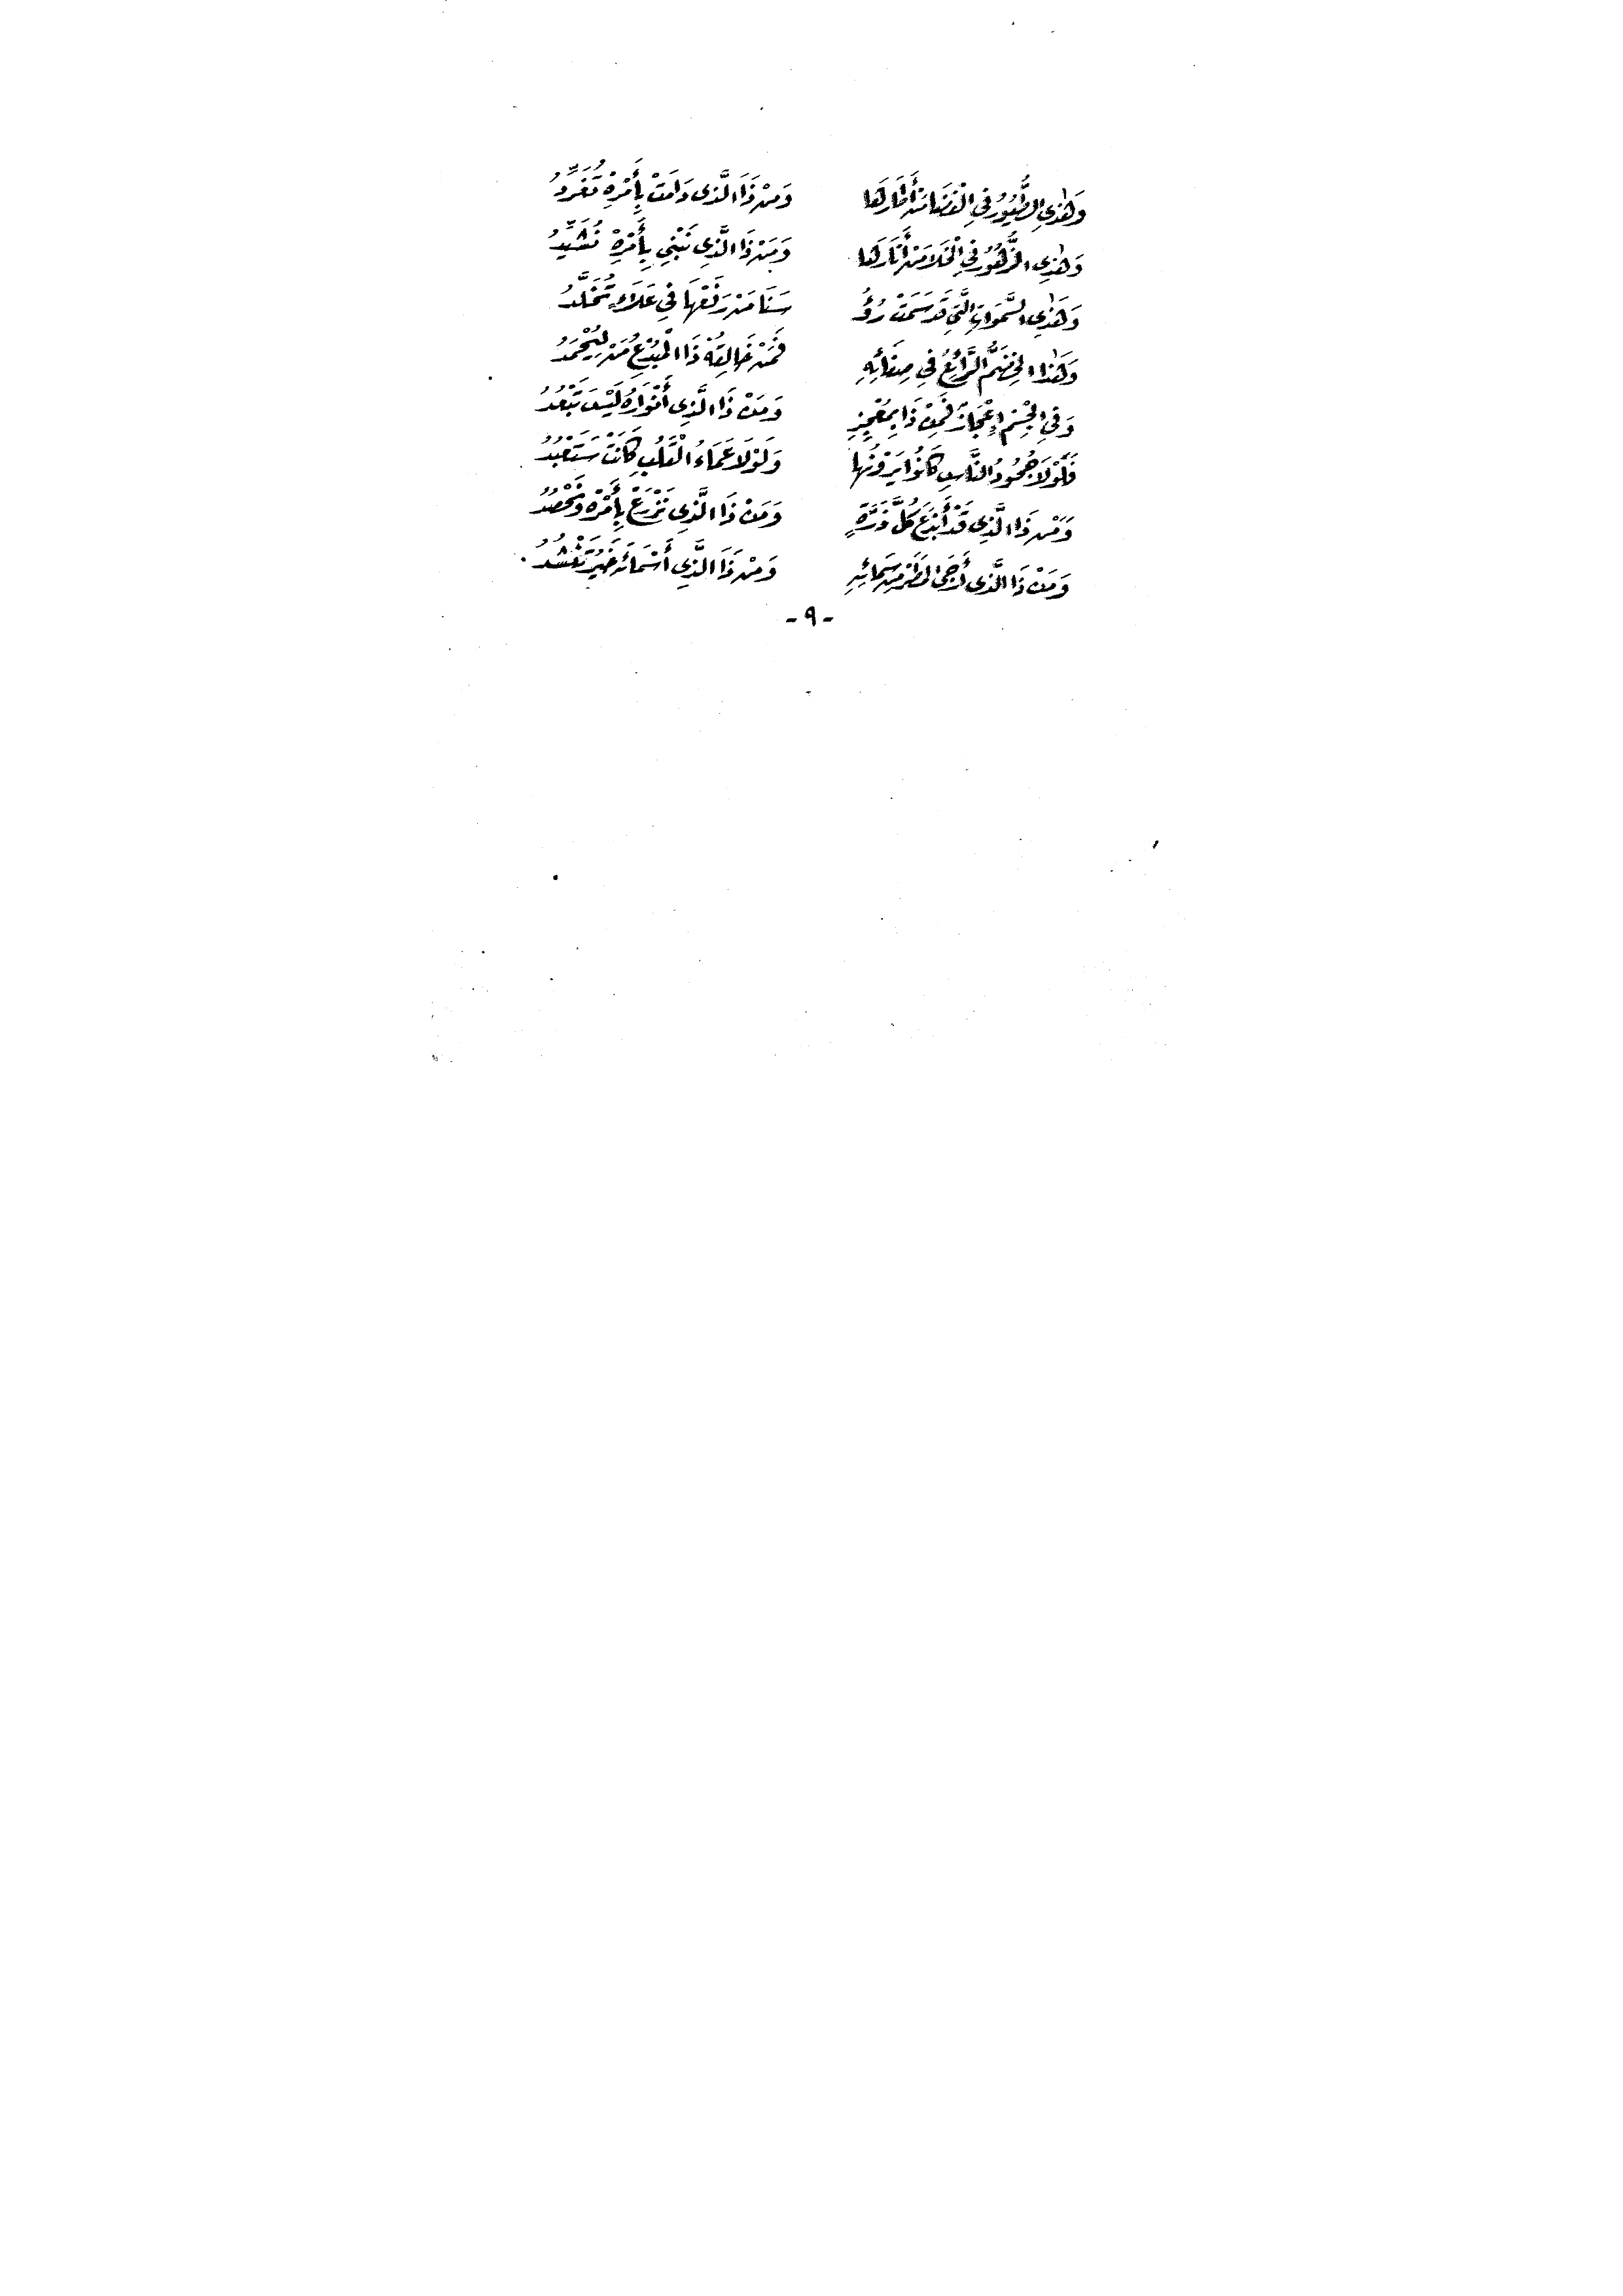 وَهٰذِي الطُّيُورُ فِي الْفَضَا مَنْ أَطَارَهَا وَمَنْ ذَا الَّذِي دَامَتْ بِأَمْرِهْ تُغَرِّدُ
وَهٰذِي الزُّهُورُ فِي الْخَلَا مَنْ أَنَارَهَا وَمَنْ ذَا الَّذِي نَبْنِي بِأَمْرِهْ نُشَيِّدُ
وَهٰذِي السَّمَوَاتِ الَّتِي قَدْ سَمَتْ رُؤً سَنَا مَنْ رَفَعْهَا فِي عَلَاءٍ تُخَلَّدُ
وَهٰذَا الْخِضَمُّ الرَّائِعُ فِي صِفَائِهِ فَمَنْ خَالِقُهْ ذَا الْمُبْدِعُ مَنْ لِيُحْمَدُ
وَفِي الْجِسْمِ إِعْجَازٌ فَمِنْ ذَا بِمُعْجِزِ وَمَنْ ذَا الَّذِي أَنْوَارُهُ لَيْسَ تَبْعُدُ
فَلَوْلَا جُحُودُ النَّاسِ كَانُوا يَرَوْنَهَا وَلَوْلَا عَمَاءُ الْقَلْبِ كَانَتْ سَتَعْبُدُ
وَمَنْ ذَا الَّذِي قَدْ أَبْدَعَ كُلَّ ذَرَّةٍ وَمَنْ ذَا الَّذِي نَزْرَعْ بِأَمْرِهْ وَنَحْصُدُ
وَمَنْ ذَا الَّذِي أَرْجَى الْمَطَرْ مِنْ سَمَائِهِ وَمَنْ ذَا الَّذِي أَسْمَائُهْ خَيْرٌ تُنْشَدُ .
- ٩ -